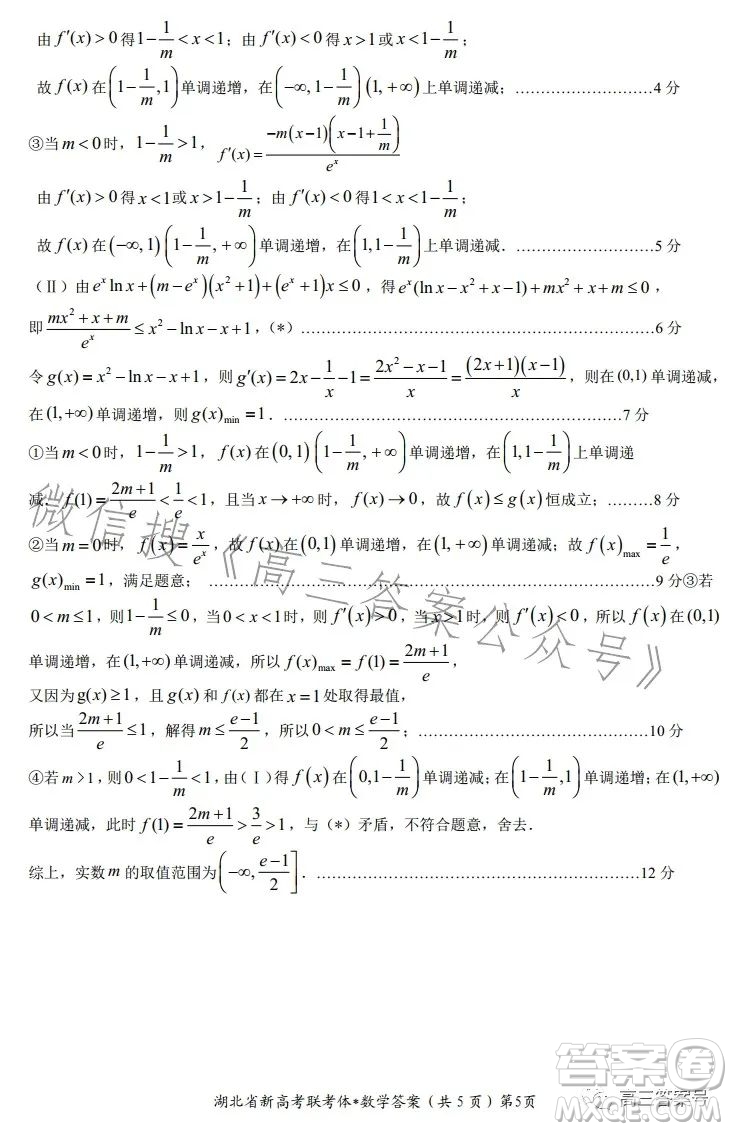 由 f′(x)>0 得 1-1/m<x<1；由 f′(x)<0 得 x>1 或 x<1-1/m；
故 f(x) 在 (1-1/m,1) 单调递增，在 (-∞,1-1/m) (1,+∞) 上单调递减；……………………………4 分
③当 m<0 时，1-1/m>1，f′(x)=(-m(x-1)(x-1+1/m))/e^x
由 f′(x)>0 得 x<1 或 x>1-1/m；由 f′(x)<0 得 1<x<1-1/m；
故 f(x) 在 (-∞,1) (1-1/m,+∞) 单调递增，在 (1,1-1/m) 上单调递减．……………………………5 分
（Ⅱ）由 e^x ln x+(m-e^x)(x^2+1)+(e^x+1)x≤0，得 e^x(ln x-x^2+x-1)+mx^2+x+m≤0，
即 (mx^2+x+m)/e^x≤x^2-ln x-x+1，(*)……………………………6 分
令 g(x)=x^2-ln x-x+1，则 g′(x)=2x-1/x-1=(2x^2-x-1)/x=((2x+1)(x-1))/x，则在 (0,1) 单调递减，
在 (1,+∞) 单调递增，则 g(x)min=1．……………………………7 分
①当 m<0 时，1-1/m>1，f(x) 在 (0,1) (1-1/m,+∞) 单调递增，在 (1,1-1/m) 上单调递
减．f(1)=(2m+1)/e<1/e<1，且当 x→+∞ 时，f(x)→0，故 f(x)≤g(x) 恒成立；………8 分
②当 m=0 时，f(x)=x/e^x，故 f(x) 在 (0,1) 单调递增，在 (1,+∞) 单调递减；故 f(x)max=1/e，
g(x)min=1，满足题意；……………………………9 分③若
0<m≤1，则 1-1/m≤0，当 0<x<1 时，则 f′(x)>0，当 x>1 时，则 f′(x)<0，所以 f(x) 在 (0,1)
单调递增，在 (1,+∞) 单调递减，所以 f(x)max=f(1)=(2m+1)/e，
又因为 g(x)≥1，且 g(x) 和 f(x) 都在 x=1 处取得最值，
所以当 (2m+1)/e≤1，解得 m≤(e-1)/2，所以 0<m≤(e-1)/2；……………………………10 分
④若 m>1，则 0<1-1/m<1，由（Ⅰ）得 f(x) 在 (0,1-1/m) 单调递减；在 (1-1/m,1)，在 (1,+∞)
单调递减，此时 f(1)=(2m+1)/e>3/e>1，与 (*) 矛盾，不符合题意，舍去．
综上，实数 m 的取值范围为 (-∞,(e-1)/2]．……………………………12 分
微信搜《高三答案公众号》
答案卷
高三答案号
湖北省新高考联考体*数学答案（共 5 页）第5页
MXQE.COM